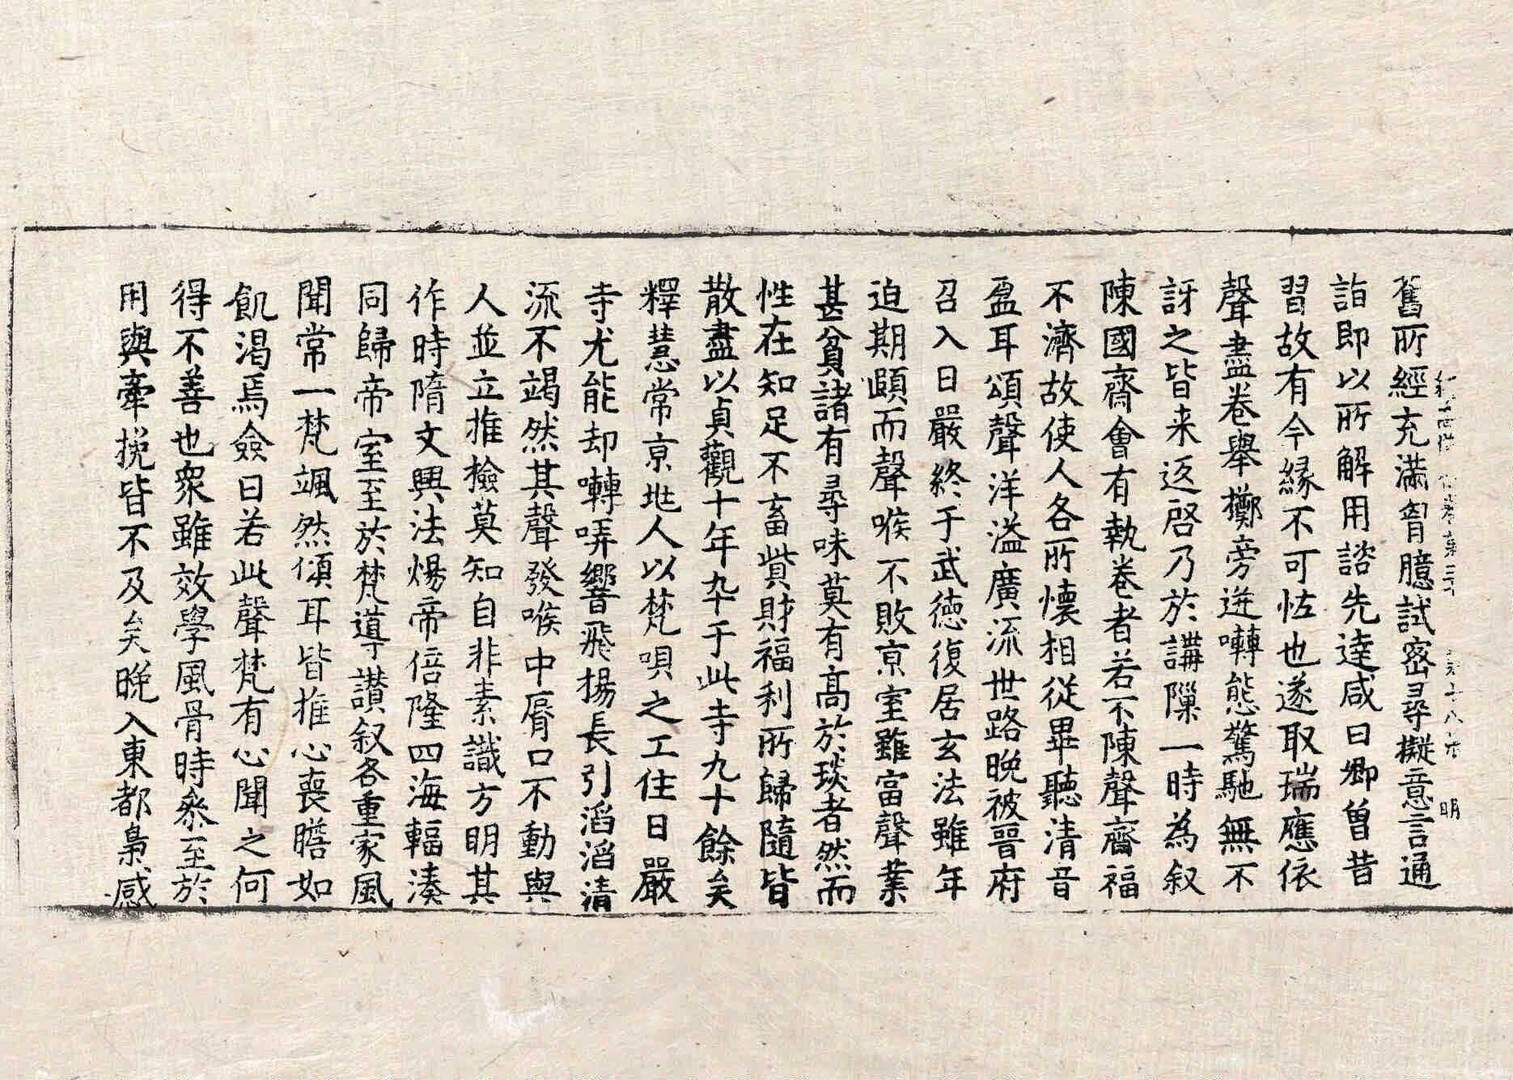 卷第三十 第十八 明
舊所經充滿胷臆試密尋擬意言通
詣即以所解用諮先達咸曰卿曾昔
習故有今緣不可恠也遂取瑞應依
聲盡卷舉擲旁迸囀態驚馳無不
訝之皆来返啓乃於講隟一時為叙
陳國齋會有執卷者若不陳聲齋福
不濟故使人各所懷相從畢聽清音
盈耳頌聲洋溢廣流世路晚被晉府
召入日嚴終于武徳復居玄法雖年
迫期頤而聲喉不敗京室雖富聲業
甚貧諸有尋味莫有高於琰者然而
性在知足不畜貲財福利所歸隨皆
散盡以貞觀十年卒于此寺九十餘矣
釋慧常京兆人以梵唄之工住日嚴
寺尤能却囀哢響飛揚長引滔滔清
流不竭然其聲發喉中脣口不動與
人並立推檢莫知自非素識方明其
作時隋文興法煬帝倍隆四海輻湊
同歸帝室至於梵導讃叙各重家風
聞常一梵颯然傾耳皆推心喪膽如
飢渴焉僉曰若此聲梵有心聞之何
得不善也衆雖效學風骨時叅至於
用與牽挽皆不及矣晚入東都梟感